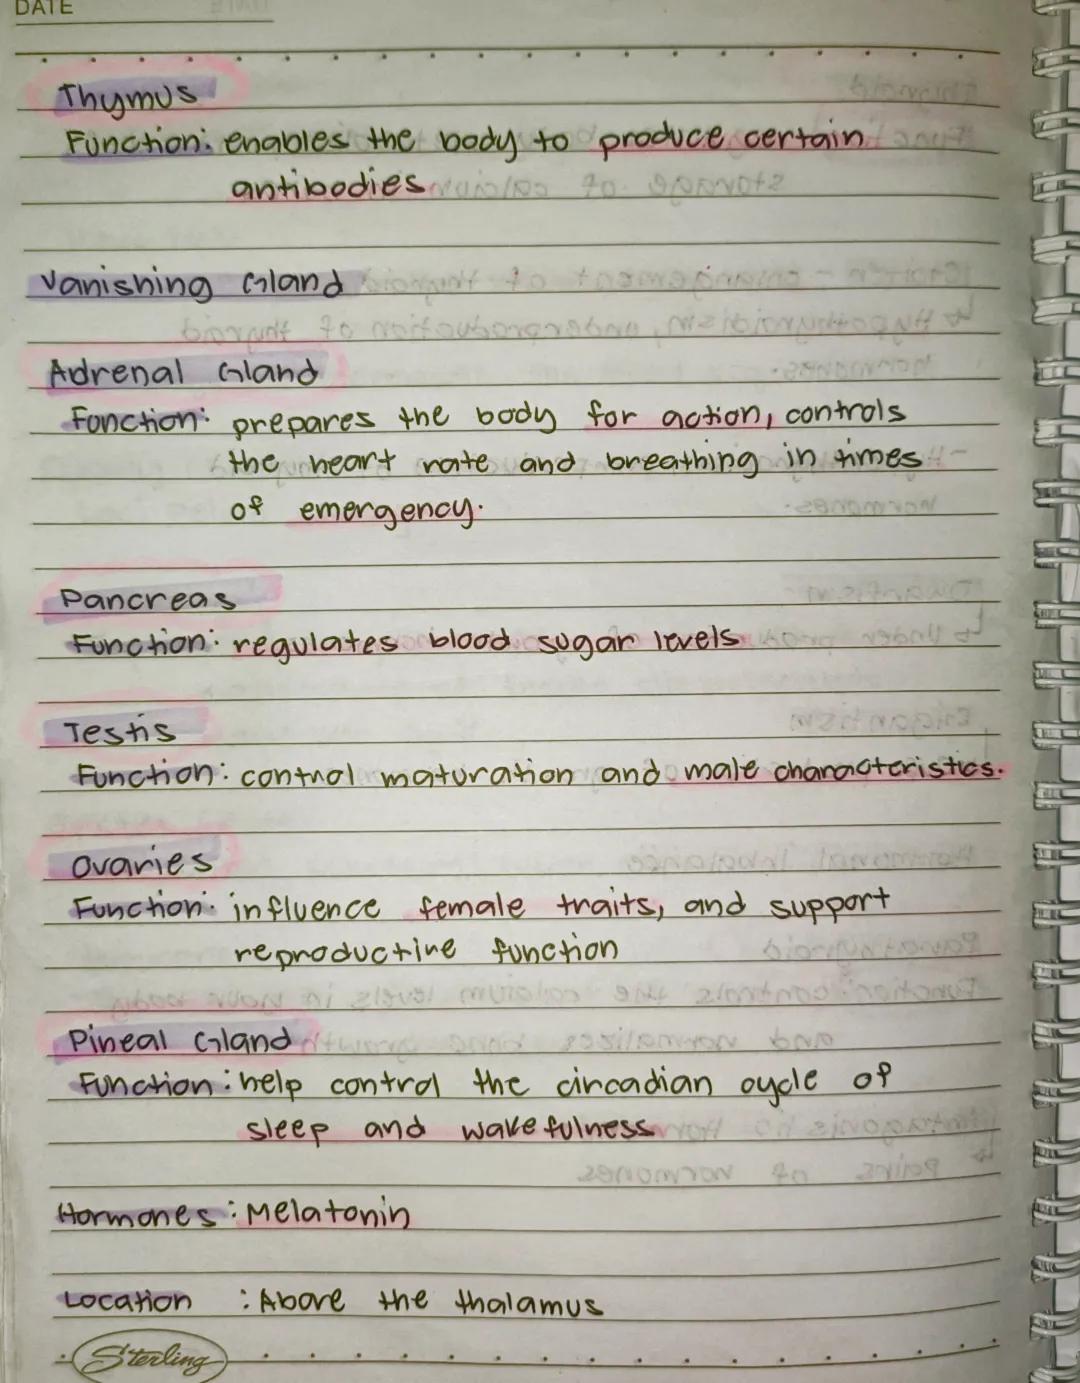 DATE
Thymus
Function: enables the body to produce certain
antibodies
Vanishing Gland
Adrenal Gland
Function: prepares the body for action, controls
the heart rate and breathing in times
of emergency.
Pancreas
Function: regulates blood sugar levels
Testis
Function: control maturation and male characteristics.
Ovaries
Function: influence female traits, and support
reproductive function
Pineal Gland
Function: help control the circadian cycle of
sleep and wakefulness
Hormones: Melatonin
Location : Above the thalamus
Sterling